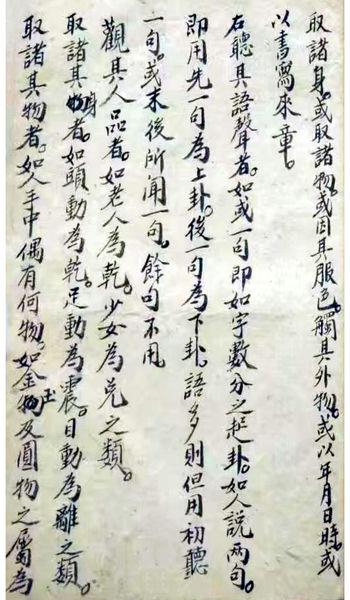 取諸身。或取諸物。或因其服色。觸其外物。或以年月日時。或
以書寫來章。
右聽其語聲者。如或一句即如字數分之起卦。如人說兩句。
即用先一句為上卦。後一句為下卦。語多則但用初聽
一句。或末後所闻一句。餘句不用
觀其人品者。如老人為乾。少女為兑之類。
取諸其身者。如頭動為乾。足動為震。目動為離之類。
取諸其物者。如人手中偶有何物。如金玉及圓物之屬為